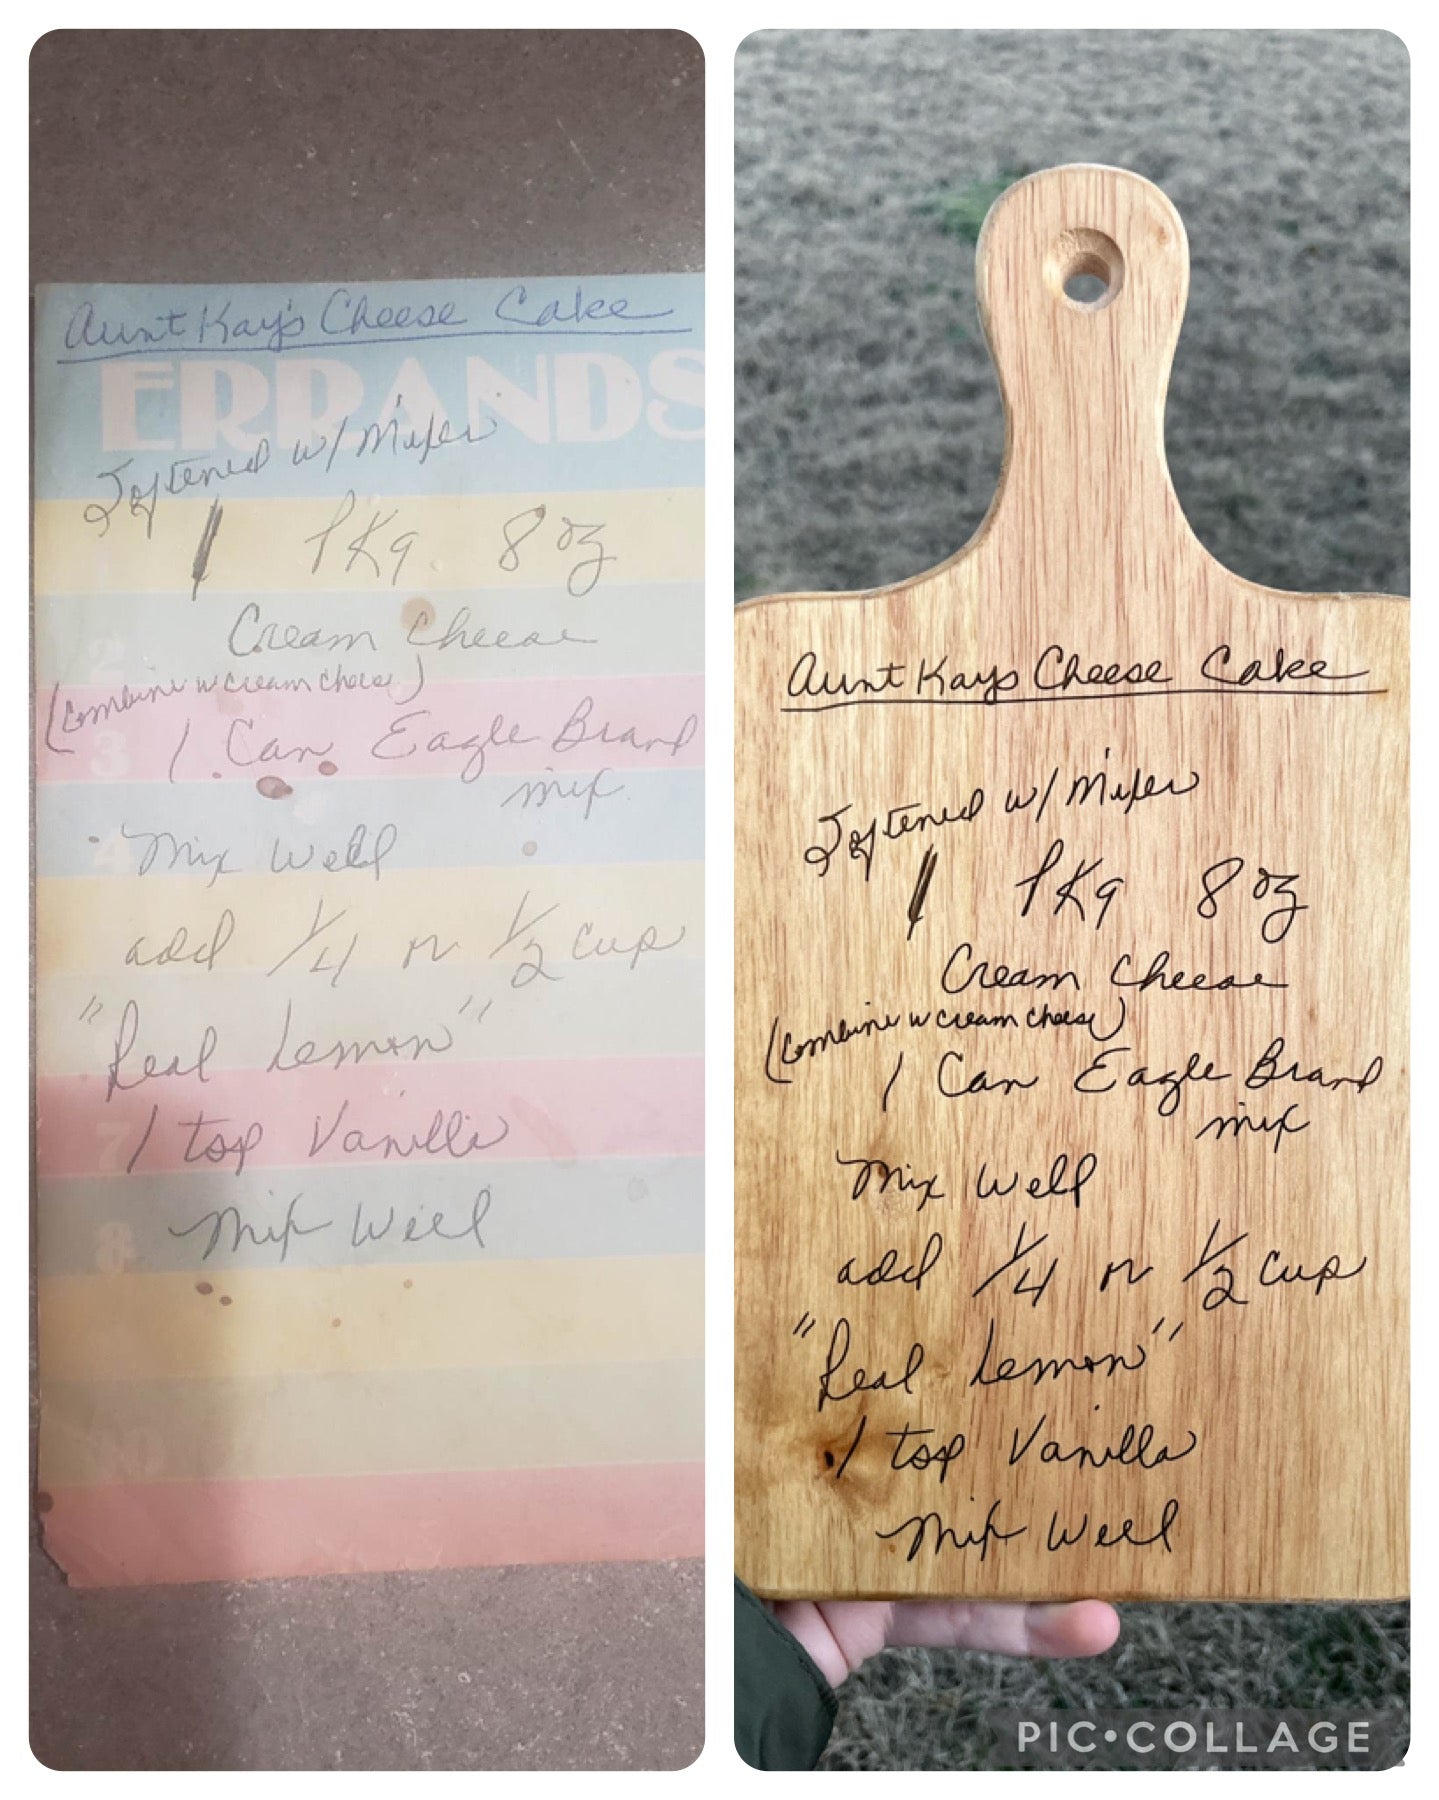 Aunt Kay's Cheese Cake
ERRANDS
Softened w/ Mixer
1 PKg. 8 oz
Cream Cheese
2
(Combine w cream cheese)
3
1 Can Eagle Brand
mix
4
Mix Well
add 1/4 or 1/2 cup
"Real Lemon"
7
1 tsp Vanilla
8
Mix Well
10
Aunt Kay's Cheese Cake
Softened w/ Mixer
1 PKg 8 oz
Cream Cheese
(Combine w cream cheese)
1 Can Eagle Brand
mix
Mix Well
add 1/4 or 1/2 cup
"Real Lemon"
1 tsp Vanilla
Mix Well
PIC•COLLAGE